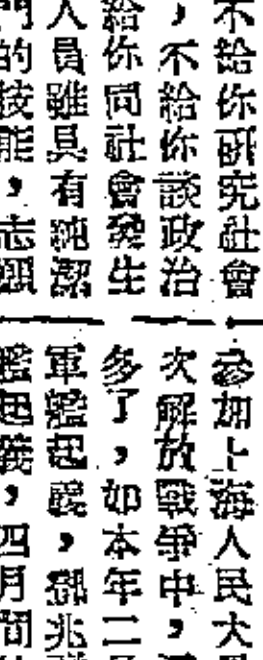 不給你研究社會
，不給你談政治
給你同社會發生
人員雖具有純潔
門的技能，志願
參加上海人民大
次解放戰爭中，
多了，如本年二
軍艦起義，鄧兆
艦起義，四月間